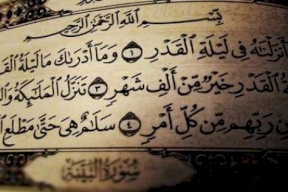 بِسْمِ اللَّهِ الرَّحْمَٰنِ الرَّحِيمِ
أَنزَلْنَاهُ فِي لَيْلَةِ الْقَدْرِ ١ وَمَا أَدْرَاكَ مَا لَيْلَةُ الْقَدْ
الْقَدْرِ خَيْرٌ مِّنْ أَلْفِ شَهْرٍ ٣ تَنَزَّلُ الْمَلَائِكَةُ وَال
رَبِّهِم مِّن كُلِّ أَمْرٍ ٤ سَلَامٌ هِيَ حَتَّىٰ مَطْلَعِ
سُورَةُ الْبَيِّنَةِ